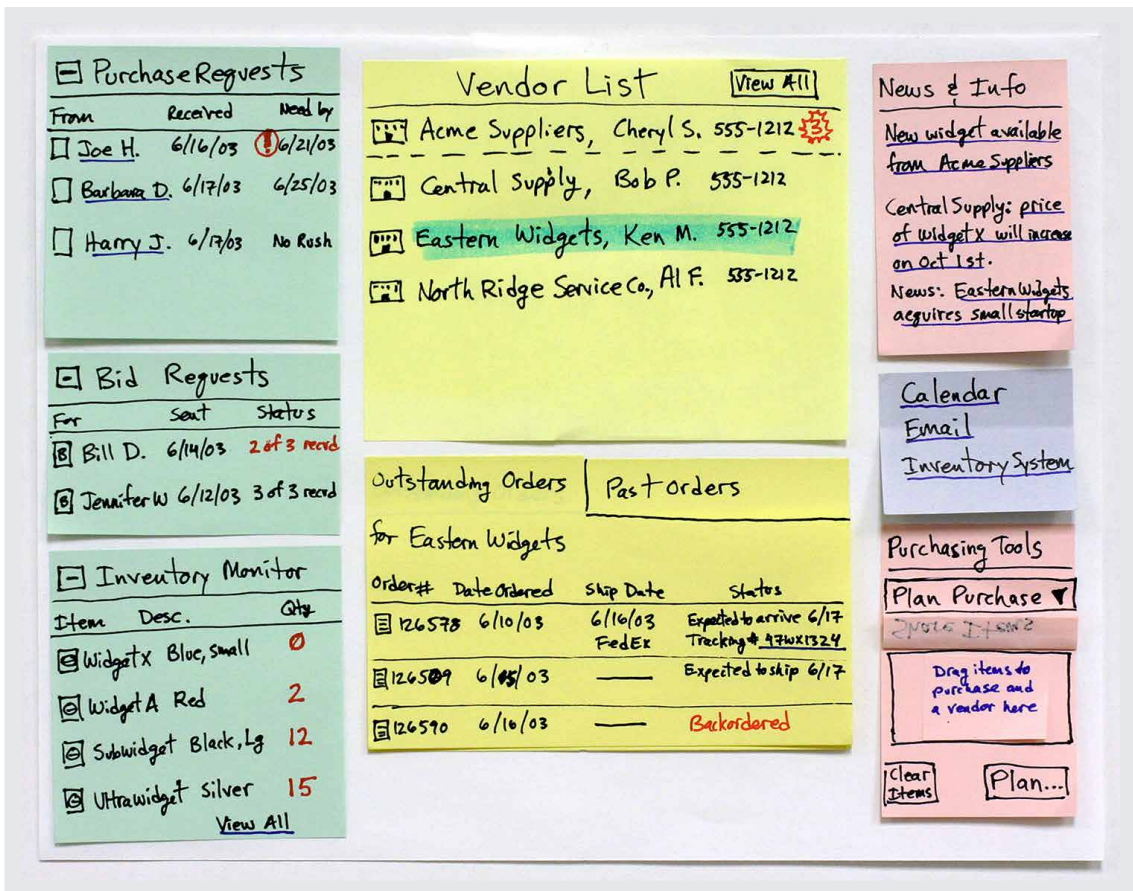 Purchase Requests
From Received Need by
Joe H. 6/16/03 ! 6/21/03
Barbara D. 6/17/03 6/25/03
Harry J. 6/17/03 No Rush
Bid Requests
For Sent Status
B Bill D. 6/14/03 2 of 3 recvd
B Jennifer W 6/12/03 3 of 3 recvd
Inventory Monitor
Item Desc. Qty
Widget X Blue, small 0
Widget A Red 2
Subwidget Black, Lg 12
Ultrawidget Silver 15
View All
Vendor List View All
Acme Suppliers, Cheryl S. 555-1212 3
Central Supply, Bob P. 555-1212
Eastern Widgets, Ken M. 555-1212
North Ridge Service Co., Al F. 555-1212
Outstanding Orders Past Orders
for Eastern Widgets
Order# Date Ordered Ship Date Status
126578 6/10/03 6/16/03 Expected to arrive 6/17
FedEx Tracking # 47WX1324
126589 6/15/03 — Expected to ship 6/17
126590 6/16/03 — Backordered
News & Info
New widget available
from Acme Suppliers
Central Supply: price
of widget X will increase
on Oct 1st.
News: Eastern Widgets
acquires small startup
Calendar
Email
Inventory System
Purchasing Tools
Plan Purchase ▼
Share Items
Drag items to
purchase and
a vendor here
Clear
Items
Plan...